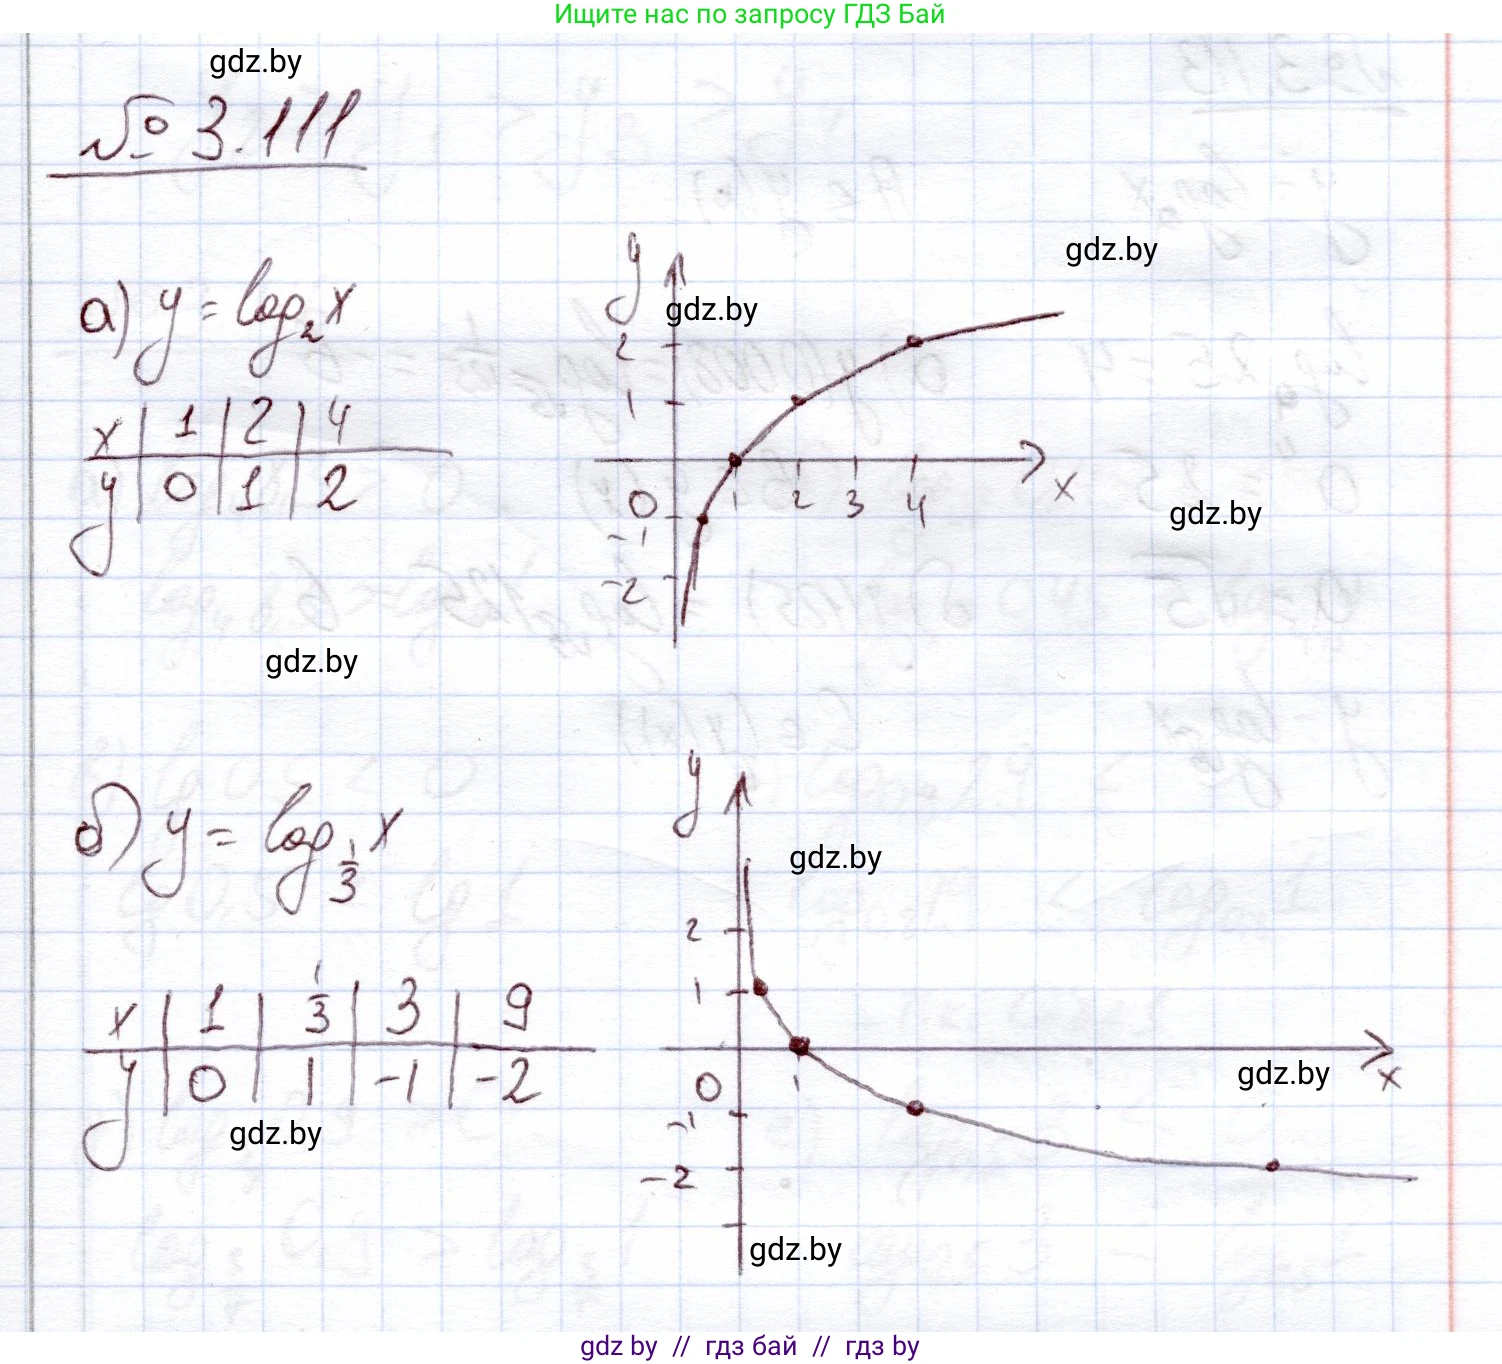 Ищите нас по запросу ГДЗ Бай
gdz.by
№ 3.111
gdz.by
а) y = log₂ x
y
gdz.by
2
1
x | 1 | 2 | 4
y | 0 | 1 | 2
0 1 2 3 4 x
-1
-2
gdz.by
gdz.by
б) y = log_{1/3} x
y
gdz.by
2
1
x | 1 | 1/3 | 3 | 9
y | 0 | 1 | -1 | -2
0 1 x
gdz.by
-1
-2
gdz.by
gdz.by
gdz by // гдз бай // гдз by